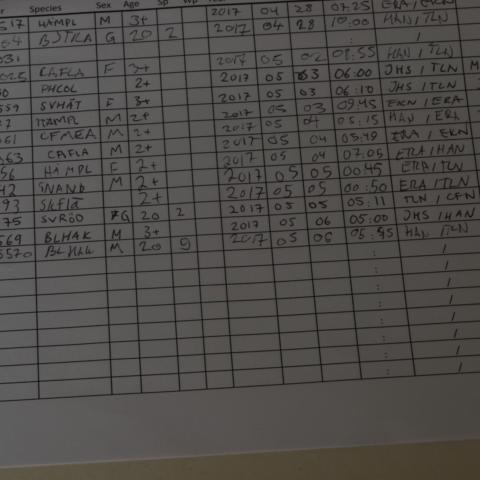 Species Sex Age Sp Wp
517 HAMPL M 3+ 2017 04 28 07:25 ERA /
BSTRA G 20 2 2017 04 28 10:00 HAN / TLN
031 : /
CAFLA F 3+ 2017 05 02 HAN / TLN
PHCOL 2+ 2017 05 03 06:00 JHS / TLN M
559 SVHÄT F 3+ 2017 05 03 06:10 JHS / TLN
HAMPL M 2+ 2017 05 03 09:45 EKN / ERA
061 M 2+ 2017 05 04 05:15 HAN / ERA
063 CAFLA M 2+ 2017 05 04 ERA / EKN
56 HAMPL F 2+ 2017 05 04 07:05 ERA / HAN
42 SNAND M 2+ 2017 05 05 00:45 ERA / TLN
93 2+ 2017 05 05 00:50 ERA / TLN
75 SVRÖD G 20 2 2017 05 05 05:11 TLN /
569 BLHAK M 3+ 2017 05 06 05:00 JHS / HAN
5570 BLHAK M 20 9 2017 05 06 HAN / TLN
: /
: /
: /
: /
: /
: /
: /